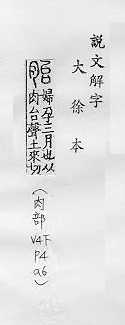 說文解字
大徐本
胎 婦孕三月也从
肉台聲土來切
(肉部
V4下
P4
a6)